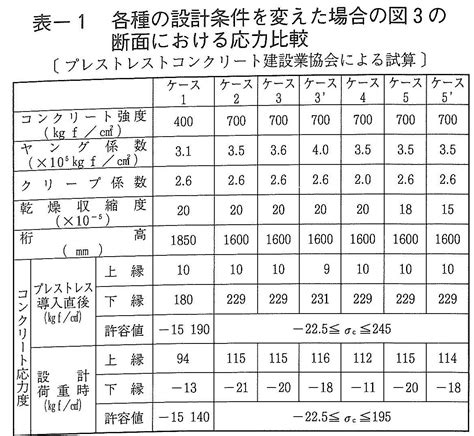 表－1 各種の設計条件を変えた場合の図3の
断面における応力比較
〔プレストレストコンクリート建設業協会による試算〕
ケース1 ケース2 ケース3 ケース3' ケース4 ケース5 ケース5'
コンクリート強度 (kgf／c㎡) 400 700 700 700 700 700 700
ヤング係数 (×10⁵kgf／c㎡) 3.1 3.5 3.6 4.0 3.5 3.5 3.5
クリープ係数 2.6 2.6 2.6 2.6 2.0 2.6 2.6
乾燥収縮度 (×10⁻⁵) 20 20 20 20 20 18 15
桁高 (mm) 1850 1600 1600 1600 1600 1600 1600
コンクリート応力度
プレストレス導入直後 (kgf／c㎡)
上縁 10 10 10 9 10 10 10
下縁 180 229 229 231 229 229 229
許容値 －15 190 －22.5≦σc≦245
設計荷重時
上縁 94 115 115 116 112 115 114
下縁 －13 －21 －20 －18 －11 －20 －18
許容値 －15 140 －22.5≦σc≦195